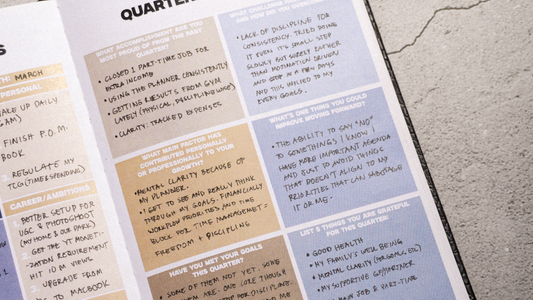 QUARTER
MARCH
PERSONAL
UP DAILY
FINISH P.O.M.
BOOK
REGULATE MY
TCG (TIME & SPENDING)
CAREER/AMBITIONS
1. BETTER SETUP FOR
UGC & PHOTOSHOOT
(MY HOME & OUR PARK)
2. GET THE YT MONETI-
ZATION REQUIREMENT
HIT 10 M VIEWS
3. UPGRADE FROM
TO MACBOOK
WHAT ACCOMPLISHMENT ARE YOU
MOST PROUD OF FROM THE PAST
QUARTER?
• CLOSED 1 PART-TIME JOB FOR
EXTRA INCOME
• USING THE PLANNER CONSISTENTLY
• GETTING RESULTS FROM GYM
LATELY (PHYSICAL, DISCIPLINE WISE)
• CLARITY - TRACKED EXPENSES
WHAT MAIN FACTOR HAS
CONTRIBUTED PERSONALLY
OR PROFESSIONALLY TO YOUR
GROWTH?
• MENTAL CLARITY BECAUSE OF
MY PLANNER.
• I GET TO SEE AND REALLY THINK
THROUGH MY GOALS, FINANCIALLY
WORKFLOW PRIORITIES AND TIME
BLOCK FOR TIME MANAGEMET =
FREEDOM + DISCIPLING
HAVE YOU MET YOUR GOALS
THIS QUARTER?
• SOME OF THEM NOT YET. SOME
ARE. ONE CORE THOUGH
FOR DISCIPLINE.
WHAT CHALLENGE
• LACK OF DISCIPLINE FOR
CONSISTENCY. TRIED DOING
IT EVEN IT'S SMALL STEP
SLOWLY BUT SURELY RATHER
THAN MOTIVATION DRIVEN
AND STOP IN A FEW DAYS
AND THIS APPLIED TO MY
EVERY GOALS.
WHAT'S ONE THING YOU COULD
IMPROVE MOVING FORWARD?
• THE ABILITY TO SAY "NO"
TO SOMETHINGS I KNOW I
HAVE MORE IMPORTANT AGENDA
AND JUST TO AVOID THINGS
THAT DOESN'T ALIGN TO MY
PRIORITIES THAT CAN SABOTAGE
IT OR ME.
LIST 5 THINGS YOU ARE GRATEFUL
FOR THIS QUARTER:
• GOOD HEALTH
• MY FAMILY'S WELL BEING
• MENTAL CLARITY (PERSONAL, ETC)
• MY SUPPORTIVE GF/PARTNER
JOB & PART-TIME